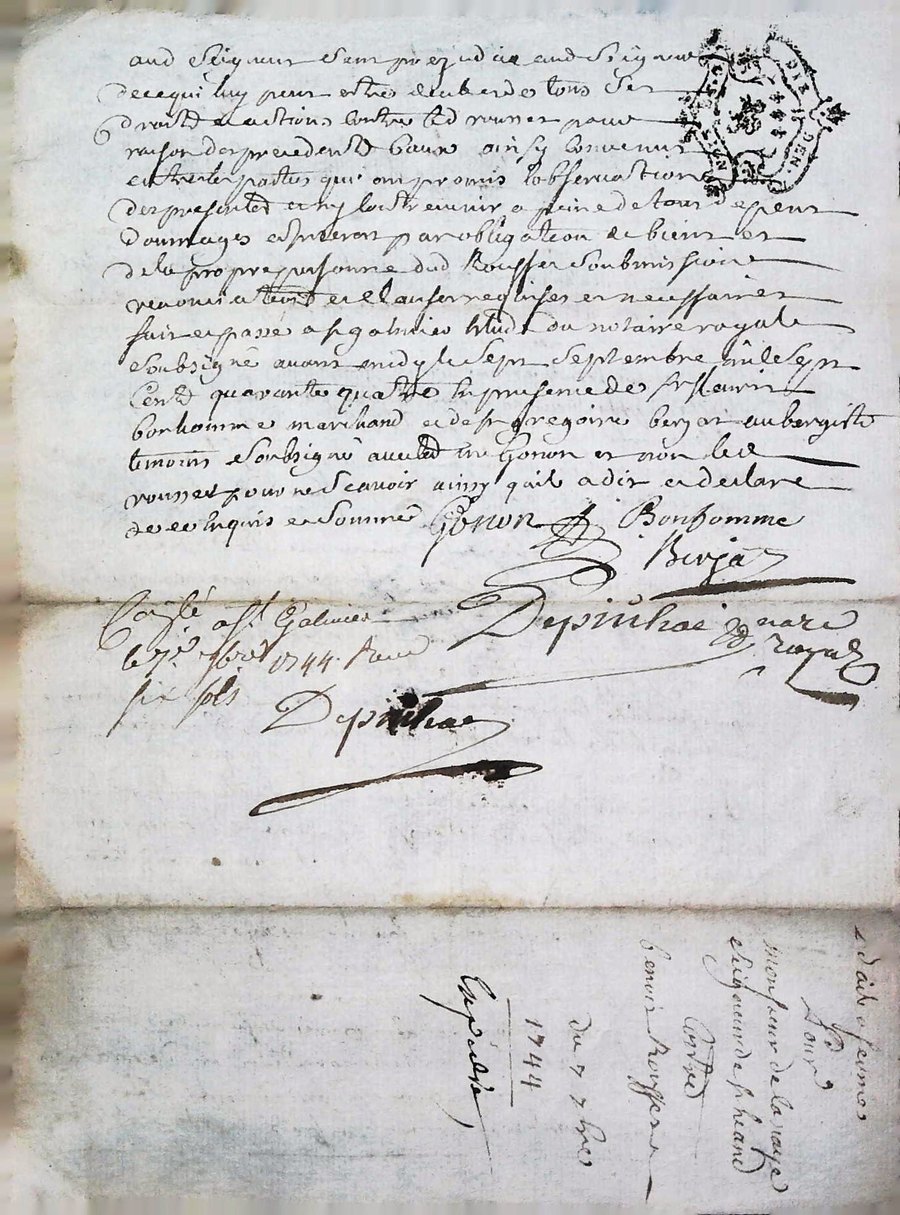 aud Seigneur sans prejudice aud Seigneur
de ce qui luy peut estre deub et de tous ses
droits et actions contre led rousset pour
raison des precedents baux ainsy convenu
entre les parties qui ont promis l'observation
des presentes et ny contrevenir a peine de tous depens
dommages et interets par obligation de biens et
de la propre personne dud Rousset Soubmissions
renonciations et clauses requises et necessaires
fait et passé a st galmier etude du notaire royal
soubsigné avant midy le sept septembre mil sept
cent quarante quatre en presence de sr
bonhomme marchand et de sr gregoire berjat aubergiste
temoins soubsignés avec led Gonon et non led
rousset pour ne scavoir ainsy quil a dit et declaré
de ce enquis et sommé Gonon Bonhomme
Berjat
Depuihae notaire
royal
Conllé a St Galmier
le 7e 7bre 1744 Reçu
six sols
Depuihae
GEN DE
LION
bail a ferme
Pour
monsieur de la raye
seigneur de st heand
Contre
benoit Rousset
du 7 7bre
1744
Expédié